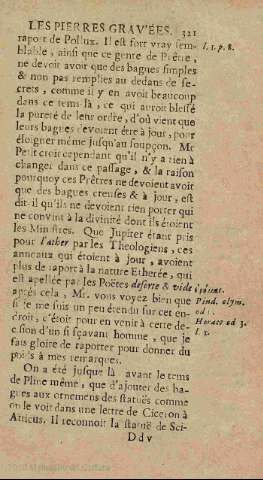 LES PIERRES GRAVÉES. 321
raport de Pollux. Il est fort vray sem-
blable, ainsi que ce genre de Prêtre,
ne devoir avoir que des bagues simples
& non pas remplies au dedans de se-
crets, comme il y en avoit beaucoup
dans ce tems là, ce qui auroit blessé
la pureté de leur ordre, d'où vient que
leurs bagues devoient être à jour, pour
éloigner même jusqu'au soupçon. Mr
Petit croit cependant qu'il n'y a rien à
changer dans ce passage, & la raison
pourquoy ces Prêtres ne devoient avoit
que des bagues creuses & à jour, est
dit-il qu'ils ne devoient rien porter qui
ne convint à la divinité dont ils étoient
les Ministres. Que Jupiter étant pris
pour l'æther par les Theologiens, ces
anneaux qui étoient à jour, avoient
plus de raport à la nature Etherée, qui
est apellée par les Poëtes deserte & vide
après cela, Mr. vous voyez bien que
si je me suis un peu étendu sur cet en-
droit, c'étoit pour en venir à cette de-
cision d'un si sçavant homme, que je
fais gloire de raporter pour donner du
poids à mes remarques.
On a été jusque là avant le tems
de Pline même, que d'ajouter des ba-
gues aux ornemens des statuës comme
on le voit dans une lettre de Ciceron à
Atticus. Il reconnoit la statuë de Sci-
Ddv
l. 1. p. 8.
Pind. olym.
od 1.
Horace od 3.
l. 1.